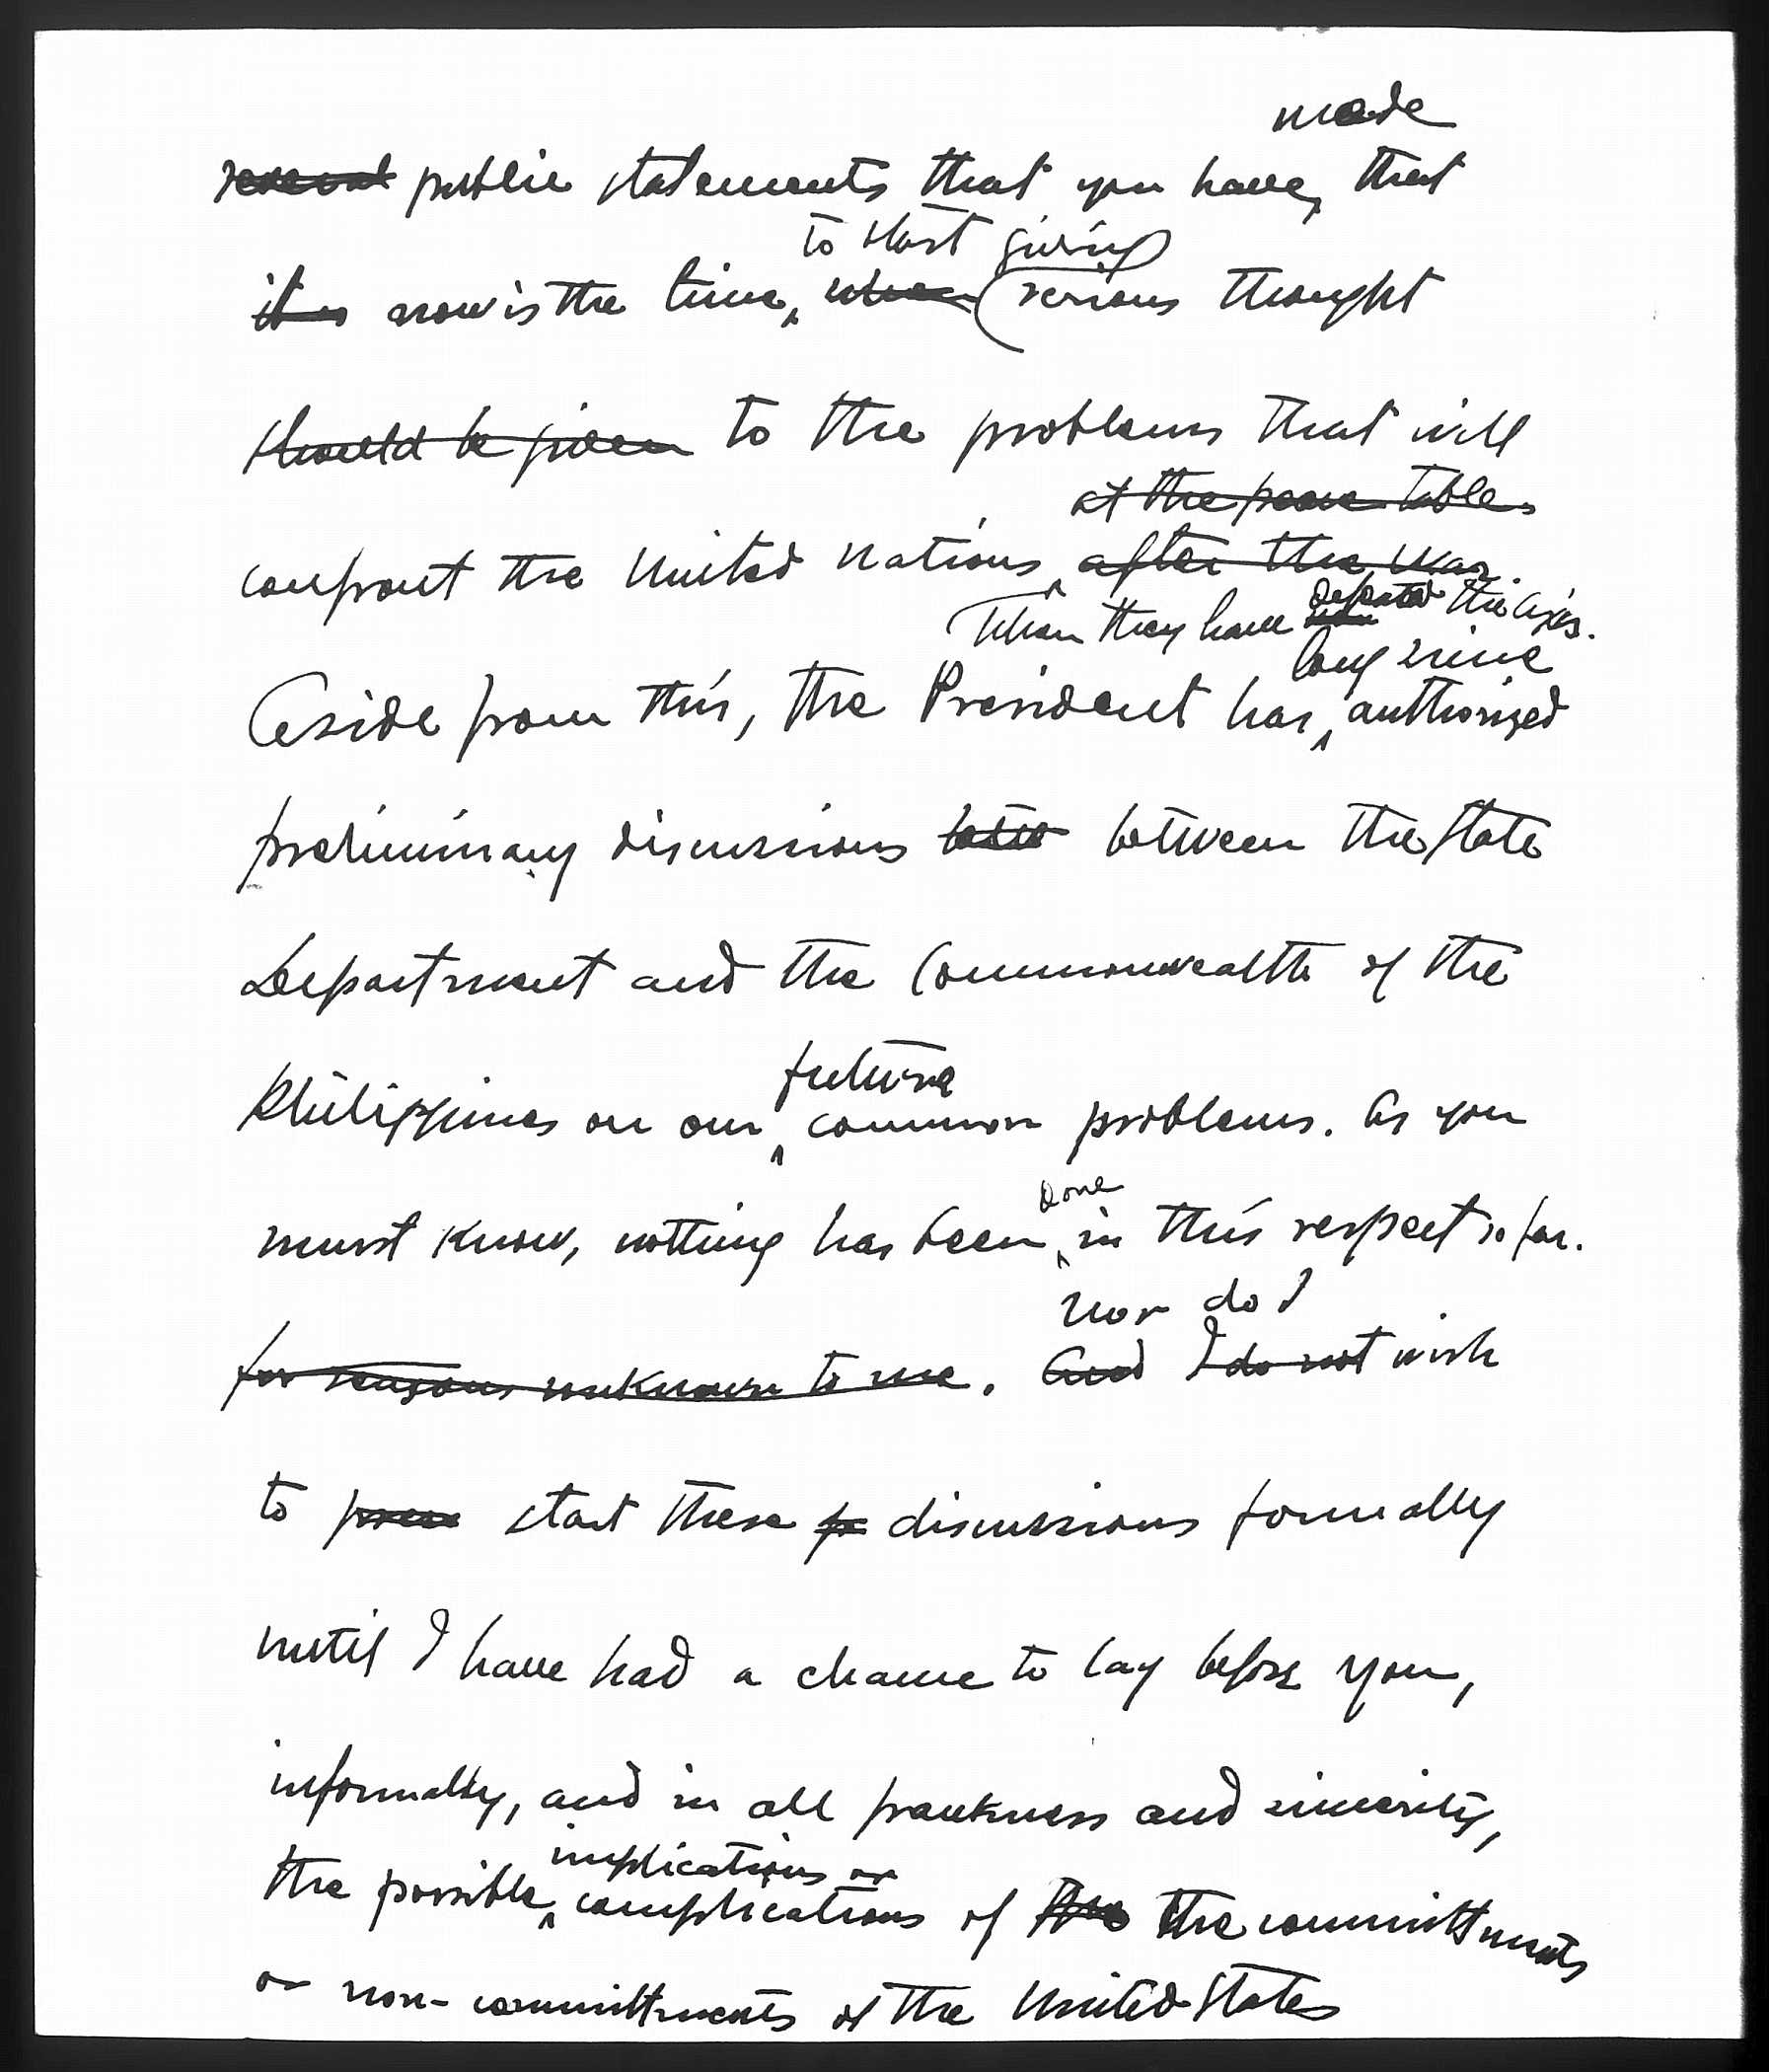 made
several public statements that you have, that
to start giving
it is now is the time, when serious thought
should be given to the problems that will
at the peace table
confront the United Nations after the war.
when they have defeated the Axis.
long since
Aside from this, the President has authorized
preliminary discussions between the State
Department and the Commonwealth of the
future
Philippines on our common problems. As you
done
must know, nothing has been in this respect so far.
nor do I
for reasons unknown to me. And I do not wish
to start these discussions formally
until I have had a chance to lay before you,
informally, and in all frankness and sincerity,
implications or
the possible complications of the the committments
or non-committments of the United States